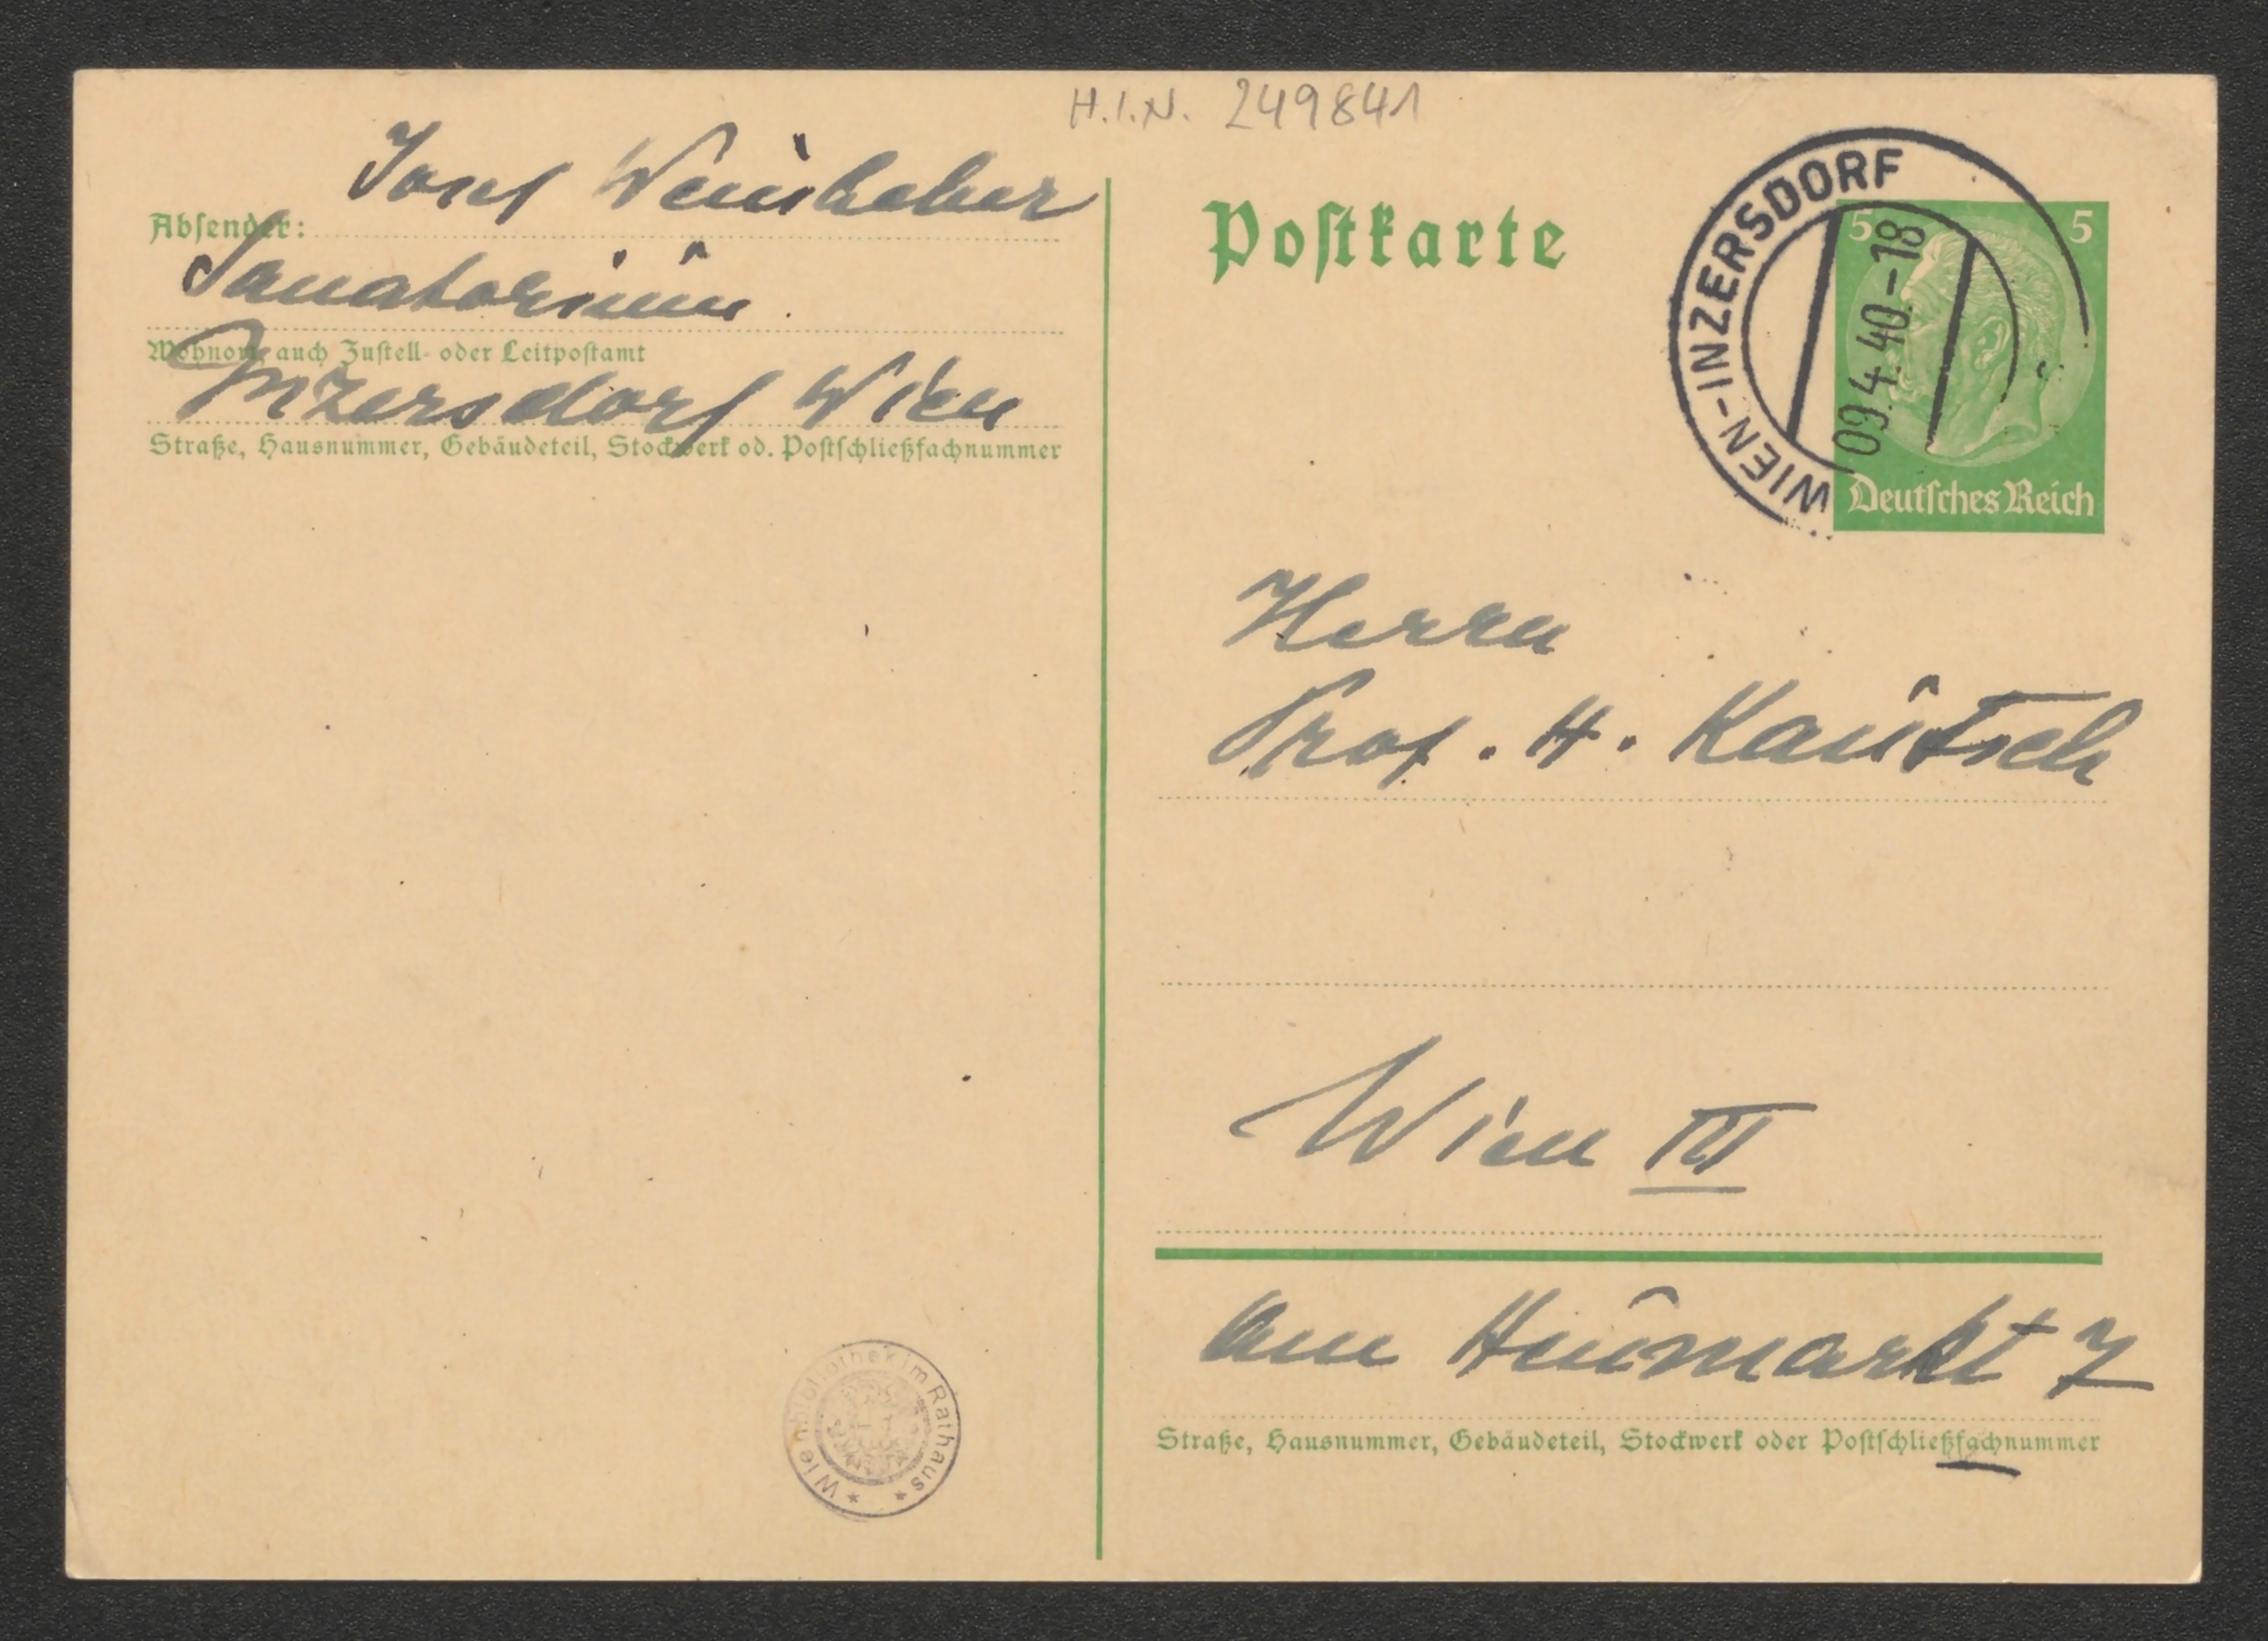 H.I.N. 249841
Josef Weinheber
Absender:
Sanatorium
Wohnort, auch Zustell- oder Leitpostamt
Inzersdorf Wien
Straße, Hausnummer, Gebäudeteil, Stockwerk od. Postschließfachnummer
Postkarte
WIEN-INZERSDORF
09.4.40.-18
5 5
Deutsches Reich
Herrn
Prof. H. Kautsch
Wien III
Am Heumarkt 7
Straße, Hausnummer, Gebäudeteil, Stockwerk oder Postschließfachnummer
* Wienbibliothek im Rathaus *